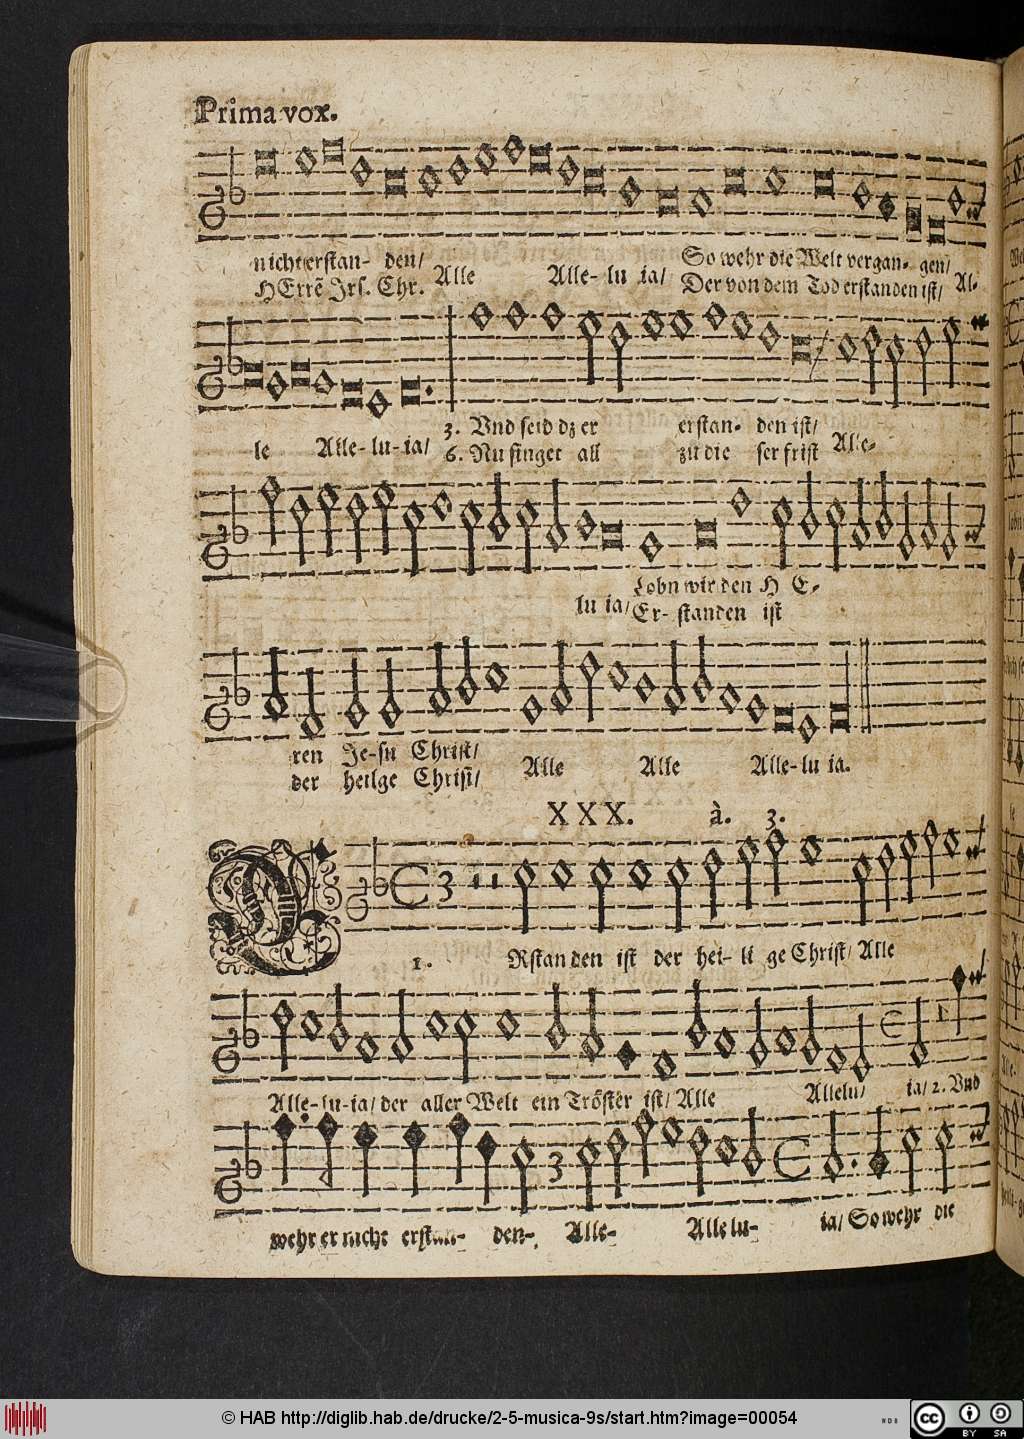 Prima vox.
nicht erstan- den/ Alle Alle- lu ia/ So wehr die Welt vergan- gen/ Al-
HErrē Jrs. Chr. Der von dem Tod erstanden ist/
le Alle- lu- ia/ 3. Vnd seid dz er erstan- den ist/ Alle-
6. Nu singet all zu die ser frist
lu ia/ Lobn wir den H E-
Er- standen ist
ren Je-su Christ/ Alle Alle Alle-lu ia.
der heilge Christ/
XXX. à. 3.
3
1. ERstanden ist der hei- li ge Christ/ Alle
Alle-lu-ia/ der aller Welt ein Tröster ist/ Alle Allelu/ ia/ 2. Vnd
3
wehr er nicht erstan- den- Alle- Alle lu- ia/ So wehr die
© HAB http://diglib.hab.de/drucke/2-5-musica-9s/start.htm?image=00054
cc BY SA